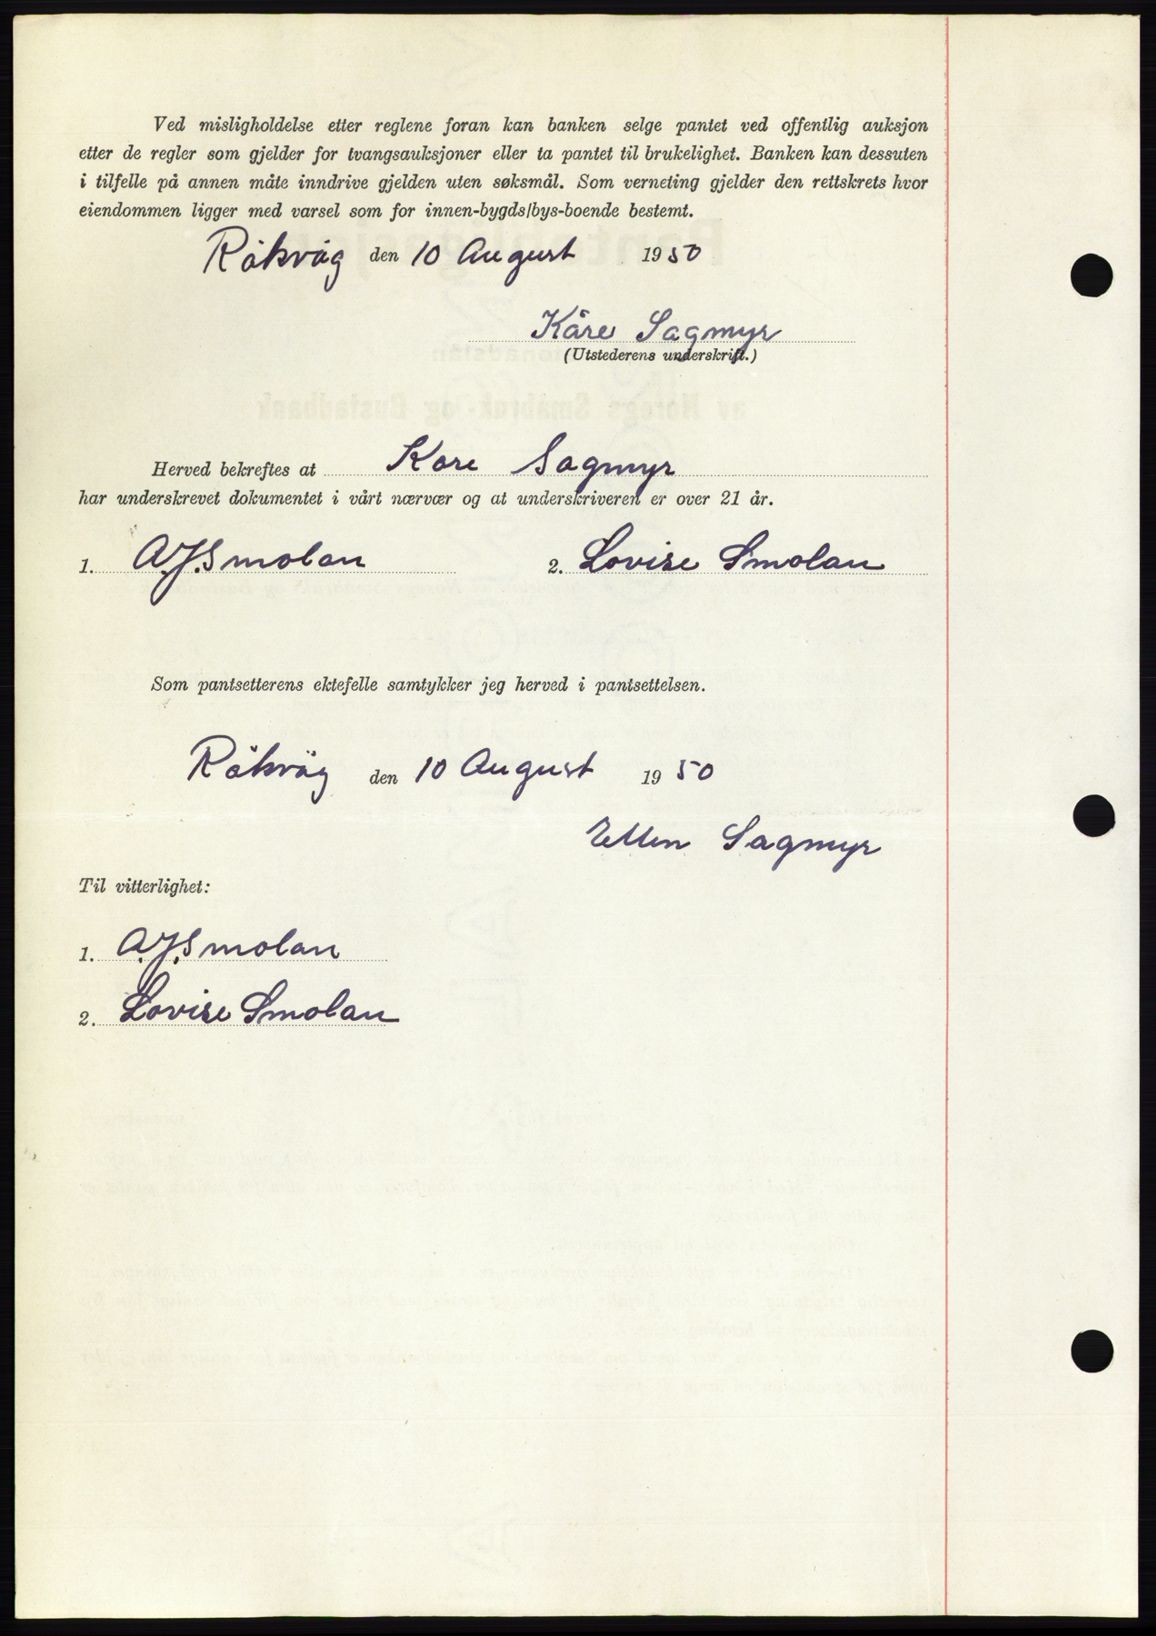 Ved misligholdelse etter reglene foran kan banken selge pantet ved offentlig auksjon
etter de regler som gjelder for tvangsauksjoner eller ta pantet til brukelighet. Banken kan dessuten
i tilfelle på annen måte inndrive gjelden uten søksmål. Som verneting gjelder den rettskrets hvor
eiendommen ligger med varsel som for innen-bygds/bys-boende bestemt.
Råkvåg den 10 August 1950
Kåre Sagmyr
(Utstederens underskrift.)
Herved bekreftes at Kåre Sagmyr
har underskrevet dokumentet i vårt nærvær og at underskriveren er over 21 år.
1. A.J.Smolan 2. Lovise Smolan
Som pantsetterens ektefelle samtykker jeg herved i pantsettelsen.
Råkvåg den 10 August 1950
Ellen Sagmyr
Til vitterlighet:
1. A.J.Smolan
2. Lovise Smolan